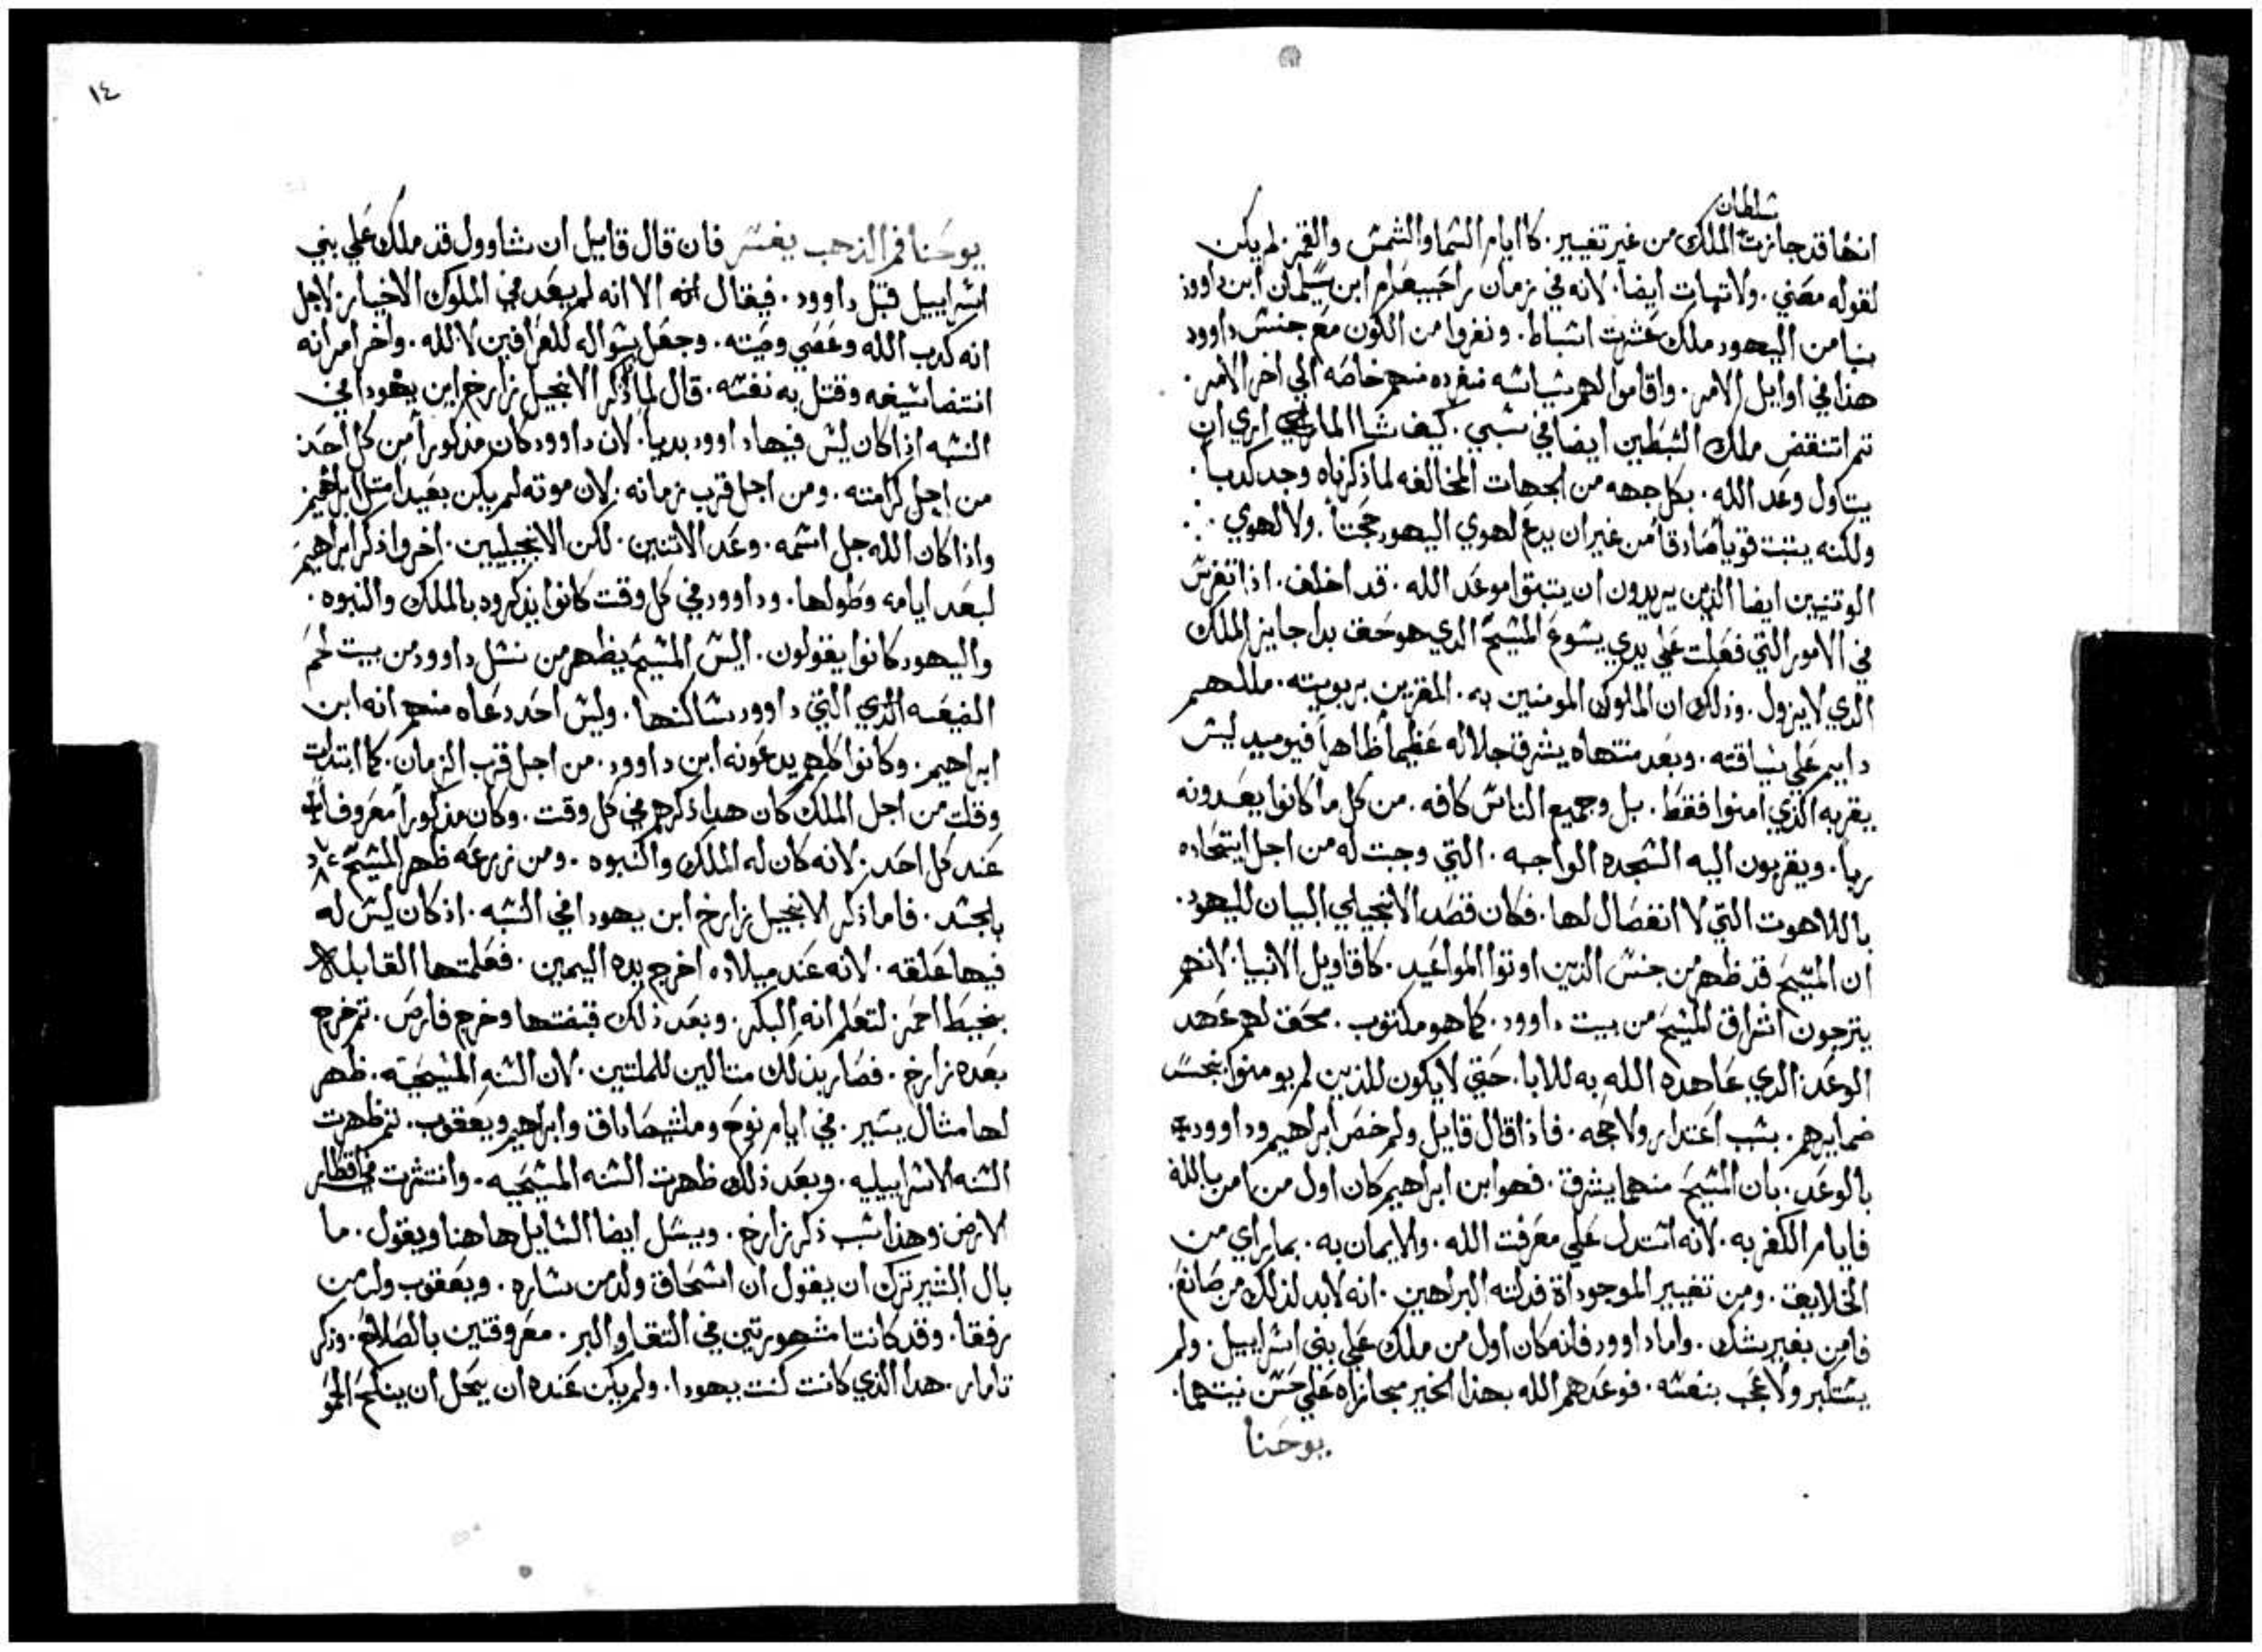 سلطان
انها قد جازت الملك من غير تغيير. كاايام السما والشمس والقمر. لم يكن
لقوله معني. ولانتهات ايضاً. لانه في زمان راحبيعام ابن سليمان ابن داوود
من اليهود ملك عشرت اسباط. ونفروا من الكون مع جنس داوود
هذا في اوايل الامر. واقاموا لهم سياسه منفرده منهم خاصه الي اخر الامر.
تم انتقض ملك السبطين ايضا في سبي. كيف شا اري ان
يتاول وعد الله. بكل جهه من الجهات المخالفه لما ذكرناه وجد كدباً.
ولكنه يتبت قوياً صادقاً من غير ان يدع لهوي اليهود حجتاً. ولا لهوي
الوتنيين ايضا الذين يريدون ان يتبتوا موعد الله. قد اخلف. اذا تفرس
في الامور التي فعلت علي يدي يسوع المسيح الدي هو حقف بدا جايز الملك
الدي لا يزول. وذلك ان الملوك المومنين به. المقرين بربوبيته. مللهم
دايم علي سياقته. وبعد منتهاه يشرق جلاله عظيماً ظاهراً فيوميد ليس
يقر به الذي امنوا فقط. بل وجميع الناس كافه. من كل ما كانوا يعبدونه
رباً. ويقربون اليه السجده الواجبه. التي وجبت له من اجل ايتحاده
باللاهوت التي لا انفصال لها. فكان قصد الانجيلي البيان لليهود.
ان المسيح قد ظهر من جنس الذين اوتوا المواعيد. كاقاويل الانبيا. لانهم
يترجون اشراق المسيح من بيت داوود. كما هو مكتوب. محقف لهم عهد
الوعد الدي عاهده الله به للابا. حتي لا يكون للذين لم يومنوا بنجس
ضمايرهم. بسب اعتدار ولا حجه. فاذا قال قايل ولم خص ابراهيم وداوود
بالوعد. بان المسيح منهما يشرق. فهو ابن ابراهيم كان اول من امن بالله
فايام الكفر به. لانه استدل علي معرفت الله. والايمان به. بما راي من
الخلايقف. ومن تغيير الموجوداة فدلته البراهين. انه لابد لذلك من صانع.
فامن بغير شك. واما داوود فانه كان اول من ملك علي بني اسراييل. ولم
يستكبر ولا عجب بنفسه. فوعدهم الله بهذا الخير مجازاه علي حسن نيتهما.
يوحنا
١٤
يوحنا فم الذهب يفسر فان قال قايل ان شاوول قد ملك علي بني
اسراييل قبل داوود. فيقال له الا انه لم يعد في الملوك الاخيار. لاجل
انه كدب الله وعصي وصيته. وجعل سواله للعرافين لا لله. واخر امر انه
انتضا سيفه وقتل به نفسه. قال لما ذكر الانجيل زارخ ابن يهودا في
النسبه اذا كان ليس فيها داوود بدياً. لان داوود كان مذكوراً من كل احد.
من اجل كرامته. ومن اجل قرب زمانه. لان موته لم يكن بعيداً متل ابراهيم
واذا كان الله جل اسمه. وعد الاتنين. لكن الانجيليين. اخروا ذكر ابراهيم
لبعد ايامه وطولها. وداوود في كل وقت كانوا يذكروه بالملك والنبوه.
واليهود كانوا يقولون. اليس المسيح يظهر من نسل داوود من بيت لحم
الضيعه الذي التي داوود ساكنها. وليس احد دعاه منهم انه ابن
ابراهيم. وكانوا كلهم يدعونه ابن داوود. من اجل قرب الزمان. كما ابتدات
وقلت من اجل الملك كان هدا ذكرهم في كل وقت. وكان مذكوراً معروفاً
عند كل احد. لانه كان له الملك والنبوه. ومن زرعه ظهر المسيح
بالجسد. فاما ذكر الانجيل زارخ ابن يهودا في النسبه. اذ كان ليس له
فيها علقه. لانه عند ميلاده اخرج يده اليمين. فعلمتها القابله
بخيط احمر. لتعلم انه البكر. وبعد ذلك قبضها وخرج فارص. تم خرج
بعده زارخ. فصار بذلك متالين للملتين. لان السنه المسيحيه. ظهر
لها مثال يسير. في ايام نوح وملشيصاداق وابراهيم ويعقوب. تم ظهرت
السنه الاسراييليه. وبعد ذلك ظهرت السنه المسيحيه. وانتشرت في اقطار
الارض وهذا سبب ذكر زارخ. ويسل ايضا السايل هاهنا ويقول. ما
بال البشير ترك ان يقول ان اسحاق ولد من ساره. ويعقوب ولد من
رفقا. وقد كانتا مشهورتين في التقا والبر. معروفتين بالصلاح. وذكر
تامار. هدا الذي كانت كنت يهودا. ولم يكن عنده ان يحل ان ينكح الحو